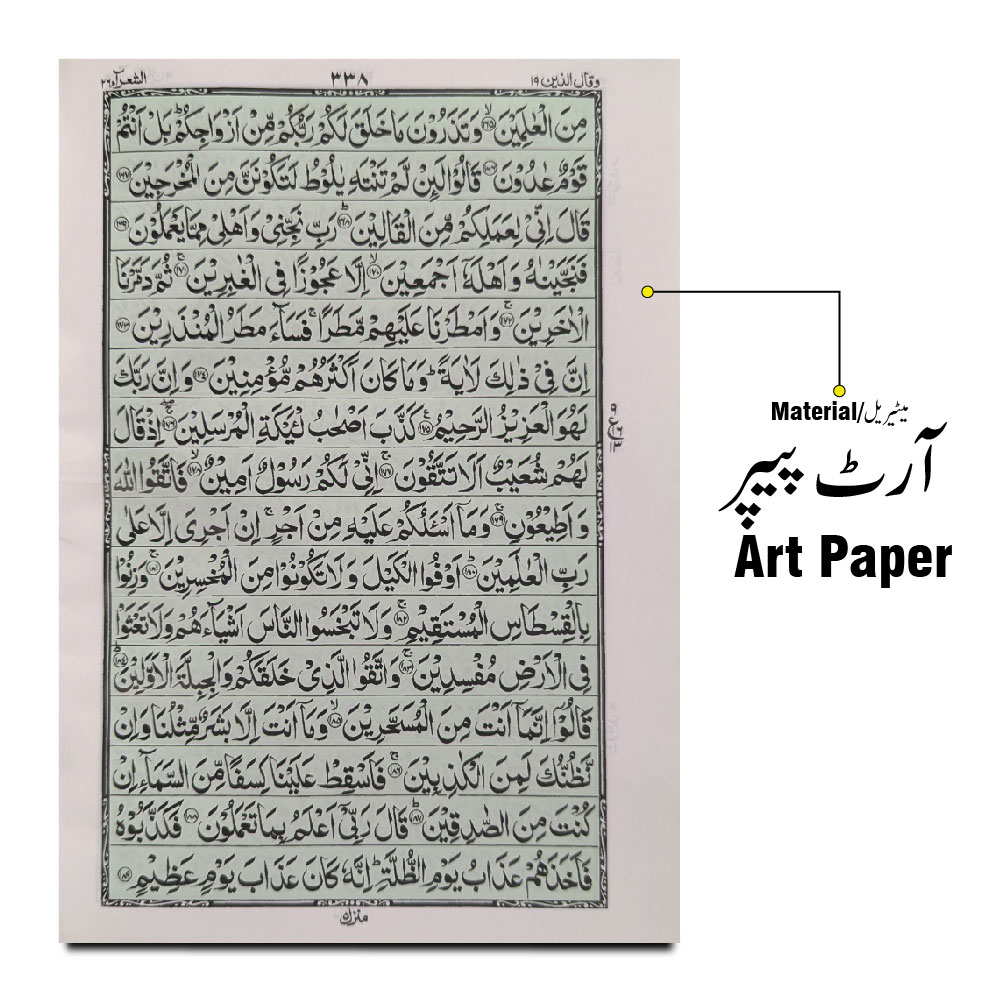 وقال الذين ١٩
٣٣٨
الشعرآء ٢٦
مِنَ الْعٰلَمِيْنَ ۙ﴿۱۶۵﴾ وَتَذَرُوْنَ مَا خَلَقَ لَكُمْ رَبُّكُمْ مِّنْ اَزْوَاجِكُمْ ؕ بَلْ اَنْتُمْ
قَوْمٌ عٰدُوْنَ ﴿۱۶۶﴾ قَالُوْا لَىِٕنْ لَّمْ تَنْتَهِ يٰلُوْطُ لَتَكُوْنَنَّ مِنَ الْمُخْرَجِيْنَ ﴿۱۶۷﴾
قَالَ اِنِّيْ لِعَمَلِكُمْ مِّنَ الْقَالِيْنَ ؕ﴿۱۶۸﴾ رَبِّ نَجِّنِيْ وَاَهْلِيْ مِمَّا يَعْمَلُوْنَ ﴿۱۶۹﴾
فَنَجَّيْنٰهُ وَاَهْلَهٗۤ اَجْمَعِيْنَ ۙ﴿۱۷۰﴾ اِلَّا عَجُوْزًا فِي الْغٰبِرِيْنَ ۚ﴿۱۷۱﴾ ثُمَّ دَمَّرْنَا
الْاٰخَرِيْنَ ۚ﴿۱۷۲﴾ وَاَمْطَرْنَا عَلَيْهِمْ مَّطَرًا ۚ فَسَآءَ مَطَرُ الْمُنْذَرِيْنَ ﴿۱۷۳﴾
اِنَّ فِيْ ذٰلِكَ لَاٰيَةً ؕ وَمَا كَانَ اَكْثَرُهُمْ مُّؤْمِنِيْنَ ﴿۱۷۴﴾ وَاِنَّ رَبَّكَ
لَهُوَ الْعَزِيْزُ الرَّحِيْمُ ﴿۱۷۵﴾ كَذَّبَ اَصْحٰبُ لْـَٔيْكَةِ الْمُرْسَلِيْنَ ۚۖ﴿۱۷۶﴾ اِذْ قَالَ
لَهُمْ شُعَيْبٌ اَلَا تَتَّقُوْنَ ۚ﴿۱۷۷﴾ اِنِّيْ لَكُمْ رَسُوْلٌ اَمِيْنٌ ۙ﴿۱۷۸﴾ فَاتَّقُوا اللّٰهَ
وَاَطِيْعُوْنِ ۚ﴿۱۷۹﴾ وَمَاۤ اَسْـَٔلُكُمْ عَلَيْهِ مِنْ اَجْرٍ ۚ اِنْ اَجْرِيَ اِلَّا عَلٰى
رَبِّ الْعٰلَمِيْنَ ؕ﴿۱۸۰﴾ اَوْفُوا الْكَيْلَ وَلَا تَكُوْنُوْا مِنَ الْمُخْسِرِيْنَ ۚ﴿۱۸۱﴾ وَزِنُوْا
بِالْقِسْطَاسِ الْمُسْتَقِيْمِ ۚ﴿۱۸۲﴾ وَلَا تَبْخَسُوا النَّاسَ اَشْيَآءَهُمْ وَلَا تَعْثَوْا
فِي الْاَرْضِ مُفْسِدِيْنَ ۚ﴿۱۸۳﴾ وَاتَّقُوا الَّذِيْ خَلَقَكُمْ وَالْجِبِلَّةَ الْاَوَّلِيْنَ ؕ﴿۱۸۴﴾
قَالُوْۤا اِنَّمَاۤ اَنْتَ مِنَ الْمُسَحَّرِيْنَ ۙ﴿۱۸۵﴾ وَمَاۤ اَنْتَ اِلَّا بَشَرٌ مِّثْلُنَا وَاِنْ
نَّظُنُّكَ لَمِنَ الْكٰذِبِيْنَ ۚ﴿۱۸۶﴾ فَاَسْقِطْ عَلَيْنَا كِسَفًا مِّنَ السَّمَآءِ اِنْ
كُنْتَ مِنَ الصّٰدِقِيْنَ ؕ﴿۱۸۷﴾ قَالَ رَبِّيْۤ اَعْلَمُ بِمَا تَعْمَلُوْنَ ﴿۱۸۸﴾ فَكَذَّبُوْهُ
فَاَخَذَهُمْ عَذَابُ يَوْمِ الظُّلَّةِ ؕ اِنَّهٗ كَانَ عَذَابَ يَوْمٍ عَظِيْمٍ ﴿۱۸۹﴾
منزل ٥
Material/میٹیریل
آرٹ پیپر
Art Paper